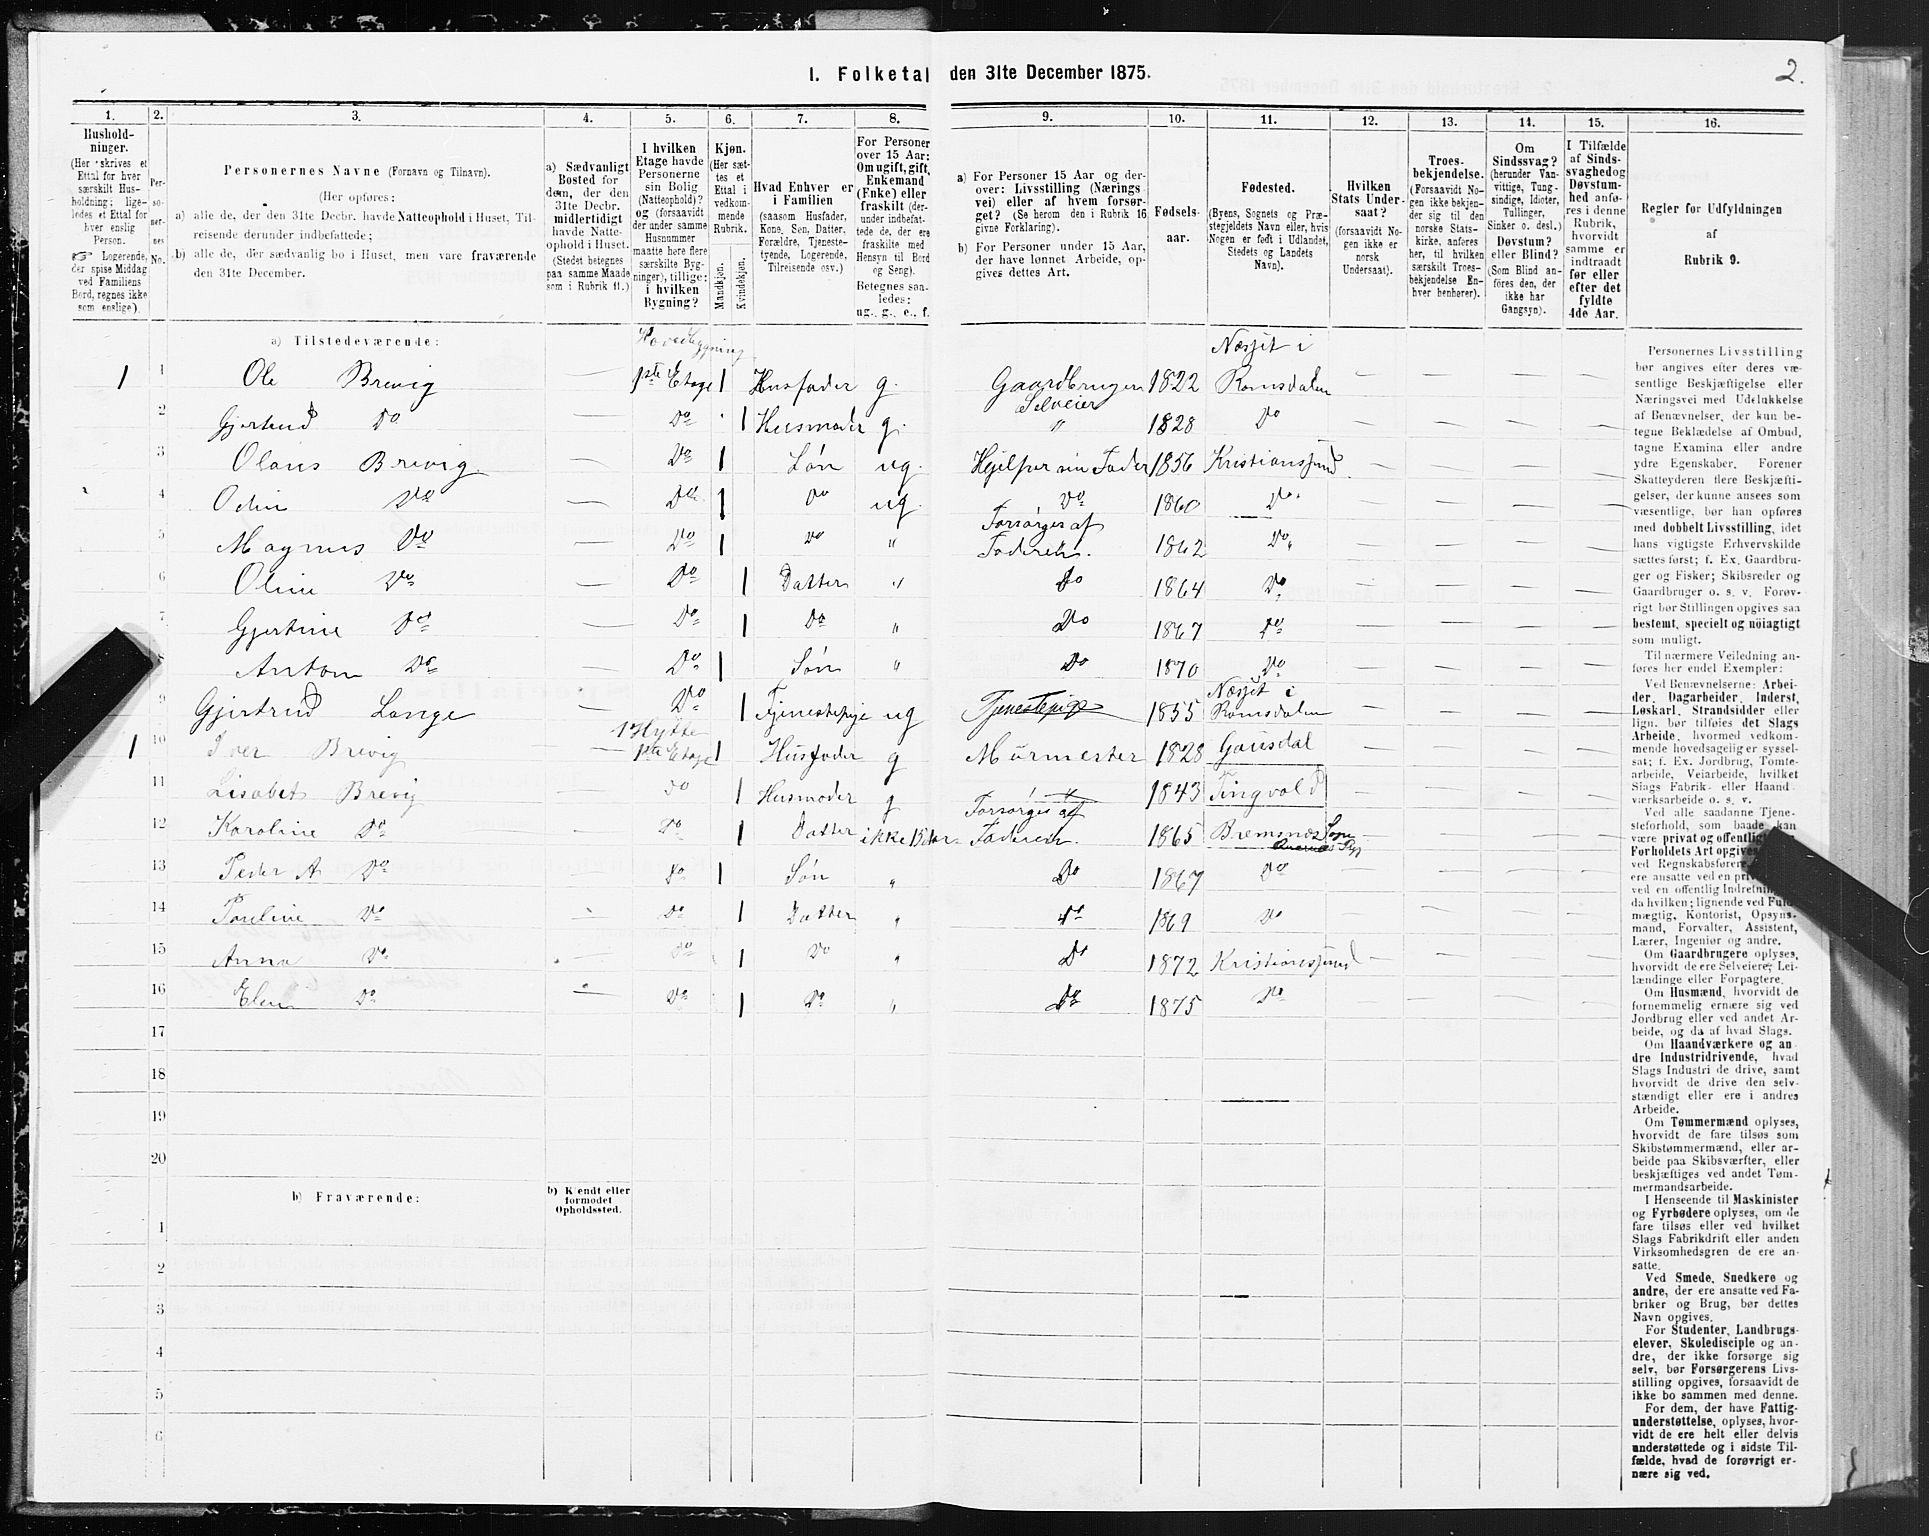 I. Folketal den 31te December 1875.
2.
1.
2.
3.
4.
5.
6.
7.
8.
9.
10.
11.
12.
13.
14.
15.
16.
Hushold-
ninger.
(Her skrives et
Ettal for hver
særskilt Hus-
holdning; lige-
ledes et Ettal for
hver enslig
Person.
Logerende,
der spise Middag
ved Familiens
Bord, regnes ikke
som enslige).
Per-
so-
ner-
nes
No.
Personernes Navne (Fornavn og Tilnavn).
(Her opføres:
a) alle de, der den 31te Decbr. havde Natteophold i Huset, Til-
reisende derunder indbefattede;
b) alle de, der sædvanlig bo i Huset, men vare fraværende
den 31te December.
a) Sædvanligt
Bosted for
dem, der den
31te Decbr.
midlertidigt
havde Natte-
ophold i Huset.
(Stedet betegnes
paa samme Maade
som i Rubrik 11.)
I hvilken
Etage havde
Personerne
sin Bolig
(Natteophold)?
og (forsaavidt
der under samme
Husnummer
maatte høre flere
særskilte Byg-
ninger), tillige:
i hvilken
Bygning?
Kjøn.
(Her sæt-
tes et
Ettal i
vedkom-
mende
Rubrik.
Mandkjøn.
Kvindekjøn.
Hvad Enhver er
i Familien
(saasom Husfader,
Kone, Søn, Datter,
Forældre, Tjeneste-
tyende, Logerende,
Tilreisende osv.)
For Personer
over 15 Aar:
Om ugift, gift,
Enkemand
(Enke) eller
fraskilt (der-
under indbefat-
tede de, der ere
fraskilte med
Hensyn til Bord
og Seng).
Betegnes saa-
ledes:
ug., g., e., f.
a) For Personer 15 Aar og der-
over: Livsstilling (Nærings-
vei) eller af hvem forsør-
get? (Se herom den i Rubrik 16
givne Forklaring).
b) For Personer under 15 Aar,
der have lønnet Arbeide, op-
gives dettes Art.
Fødsels-
aar.
Fødested.
(Byens, Sognets og Præ-
stegjeldets Navn eller, hvis
Nogen er født i Udlandet,
Stedets og Landets
Navn).
Hvilken
Stats Under-
saat?
(forsaavidt No-
gen ikke er
norsk
Undersaat).
Troes-
bekjendelse.
(Forsaavidt No-
gen ikke bekjen-
der sig til den
norske Stats-
kirke, anføres
her, til hvilken
særskilt Troes-
bekjendelse En-
hver henhører).
Om
Sindssvag?
(herunder Van-
vittige, Tung-
sindige, Idioter,
Tullinger,
Sinker o. desl.)
Døvstum?
eller Blind?
(Som Blind an-
føres den, der
ikke har
Gangsyn).
I Tilfælde
af Sinds-
svaghed og
Døvstum-
hed anfø-
res i denne
Rubrik,
hvorvidt
samme er
indtraadt
før eller
efter det
fyldte
4de Aar.
Regler for Udfyldningen
af
Rubrik 9.
a) Tilstedeværende:
Hovedbygning
1 1 Ole Brevig — 1ste Etage 1 Husfader g. Gaardbruger Selveier 1822 Næsjet i Romsdalen — — — —
2 Gjertrud Do — Do 1 Husmoder g. " 1828 Do — — — —
3 Olaus Brevig — Do 1 Søn ug. Hjelper sin Fader 1856 Kristianssund — — — —
4 Odin Do — Do 1 Do ug. Do 1860 Do — — — —
5 Magnus Do — Do 1 Do " Forsørges af Faderen. 1862 Do — — — —
6 Oline Do — Do 1 Datter " Do 1864 Do — — — —
7 Gjertine Do — Do 1 Do " Do 1867 Do — — — —
8 Anton Do — Do 1 Søn " Do 1870 Do — — — —
9 Gjertrud Lange — Do 1 Tjenestepige ug Tjenestepige 1855 Næsjet i Romsdalen — — — —
1 Hytte
1 10 Iver Brevig — 1ste Etage 1 Husfader g Murmester 1828 Gausdal — — — —
11 Lisabet Brevig — Do 1 Husmoder g " 1843 Tingvold — — — —
12 Karoline Do — Do 1 Datter ikke 15 Aar Forsørges af Faderen. 1865 Bremsnæs — — — —
13 Peder A Do — Do 1 Søn " Do 1867 Do — — — —
14 Pauline Do — Do 1 Datter " Do 1869 Do — — — —
15 Anna Do — Do 1 Do " Do 1872 Kristianssund — — — —
16 Elen Do — Do 1 Do " Do 1875 Do — — — —
17
18
19
20
b) Fraværende:
b) Kjendt eller
formodet
Opholdssted.
1
2
3
4
5
6
Personernes Livsstilling
bør angives efter deres væ-
sentlige Beskjæftigelse eller
Næringsvei med Udelukkelse
af Benævnelser, der kun be-
tegne Beklædelse af Ombud,
tagne Examina eller andre
ydre Egenskaber. Forener
Skatteyderen flere Beskjæfti-
gelser, der kunne ansees som
væsentlige, bør han opføres
med dobbelt Livsstilling, idet
hans vigtigste Erhvervskilde
sættes først; f. Ex. Gaardbru-
ger og Fisker; Skibsreder og
Gaardbruger o. s. v. Forøv-
rigt bør Stillingen opgives saa
bestemt, specielt og nöiagtigt
som muligt.
Til nærmere Veiledning an-
føres her endel Exempler:
Ved Benævnelserne: Arbei-
der, Dagarbeider, Inderst,
Løskarl, Strandsidder eller
lign. bør tilføies det Slags
Arbeide, hvormed vedkom-
mende hovedsagelig er syssel-
sat; f. Ex. Jordbrug, Tomte-
arbeide, Veiarbeide, hvilket
Slags Fabrik- eller Haand-
værksarbeide o. s. v.
Ved alle saadanne Tjene-
steforhold, som baade kan
være privat og offentlig
Forholdets Art opgives
ved Regnskabsføre
ere ansatte ved en pri
ved en offentlig Indretnin
da hvilken; lignende ved Fuld-
mægtig, Kontorist, Opsyns-
mand, Forvalter, Assistent,
Lærer, Ingeniør og andre.
Om Gaardbrugere oplyses,
hvorvidt de ere Selveiere, Lei-
lændinge eller Forpagtere.
Om Husmænd, hvorvidt de
fornemmelig ernære sig ved
Jordbrug eller ved andet Ar-
beide, og da af hvad Slags.
Om Haandværkere og an-
dre Industridrivende, hvad
Slags Industri de drive, samt
hvorvidt de drive den selv-
stændigt eller ere i andres
Arbeide.
Om Tømmermænd oplyses,
hvorvidt de fare tilsøs som
Skibstømmermænd, eller ar-
beide paa Skibsværfter, eller
beskjæftiges ved andet Tøm-
mermandsarbeide.
I Henseende til Maskinister
og Fyrbødere oplyses, om de
fare tilsøs eller ved hvilket
Slags Fabrikdrift eller anden
Virksomhedsgren de ere an-
satte.
Ved Smede, Snedkere og
andre, der ere ansatte ved Fa-
briker og Brug, bør dettes
Navn opgives.
For Studenter, Landbrugs-
elever, Skoledisciple og an-
dre, der ikke forsørge sig
selv, bør Forsørgerens Livs-
stilling opgives, forsaavidt de
ikke bo sammen med denne.
For dem, der have Fattig-
understøttelse, oplyses, hvor-
vidt de ere helt eller delvis
understøttede og i sidste Til-
fælde, hvad de forøvrigt er-
nære sig ved.